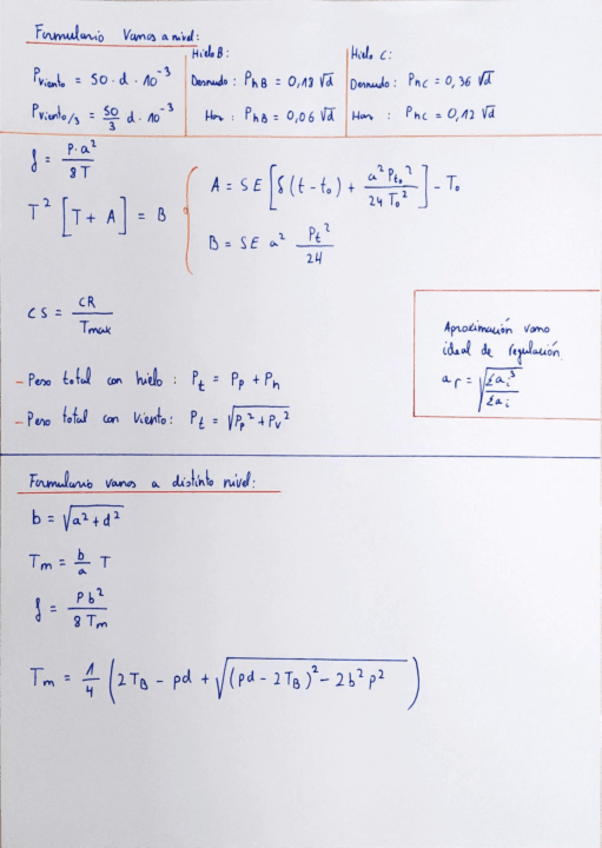 Formulario Vanos a nivel:
Pviento = 50 · d · 10⁻³
Pviento/3 = 50/3 d · 10⁻³
Hielo B:
Desnudo : PhB = 0,18 √d
Haz : PhB = 0,06 √d
Hielo C:
Desnudo : Phc = 0,36 √d
Haz : Phc = 0,12 √d
f = P·a² / 8T
T² [T + A] = B
A = SE [δ (t - t₀) + a² Pt₀² / 24 T₀²] - T₀
B = SE a² Pt² / 24
CS = CR / Tmax
Aproximación vano
ideal de regulación.
ar = √(Σai³ / Σai)
- Peso total con hielo : Pt = Pp + Ph
- Peso total con Viento: Pt = √(Pp² + Pv²)
Formulario vanos a distinto nivel:
b = √(a² + d²)
Tm = b/a T
f = Pb² / 8 Tm
Tm = 1/4 (2TB - pd + √((pd - 2TB)² - 2b² p²))